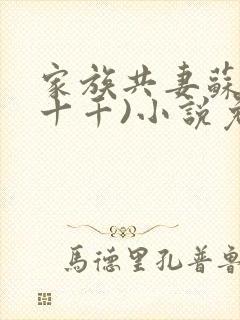 家族共妻蘇
十干)小說
馬德里孔普魯